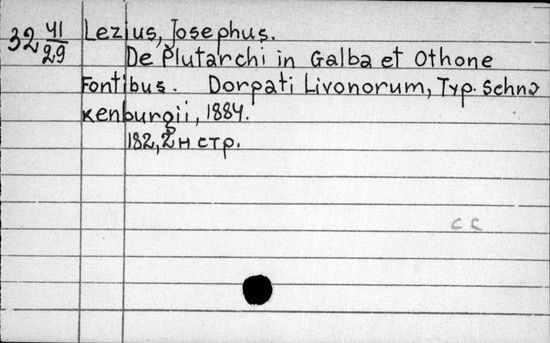 32 41/29
Lezius, Josephus.
De Plutarchi in Galba et Othone
Fontibus. Dorpati Livonorum, Typ. Schna
kenburgii, 1884.
182, 2 н стр.
С С